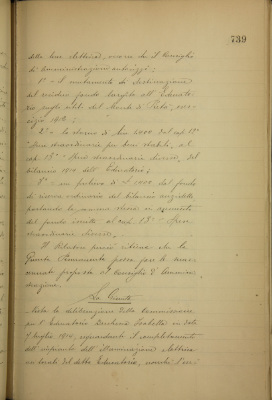 739
della luce elettrica, ovvero che il Consiglio
di Amministrazione autorizzi:
1° - il mutamento di destinazione
del residuo fondo largito all'Educato-
rio dagli utili del Monte di Pietà, eser-
cizio
2° - lo storno di lire 2000 dal cap.
"Spese straordinarie per beni stabili", al
cap. 13° "Spese straordinarie diverse", del
bilancio 1914 dell'Educatorio;
3° - un prelievo di £ 1000 dal fondo
di riserva ordinario del bilancio medesimo
portando la somma stessa in aumento
del fondo inscritto al cap. 13° - Spese
straordinarie diverse.
Il Relatore perciò ritiene che la
Giunta Permanente possa fare le
proposte al Consiglio d'Ammini-
strazione.
La Giunta
Vista la deliberazione della Commissione
per l'Educatorio in data
9 luglio 1914, riguardante il completamento
dell'impianto dell'illuminazione elettrica
nei locali del detto Educatorio, nonché